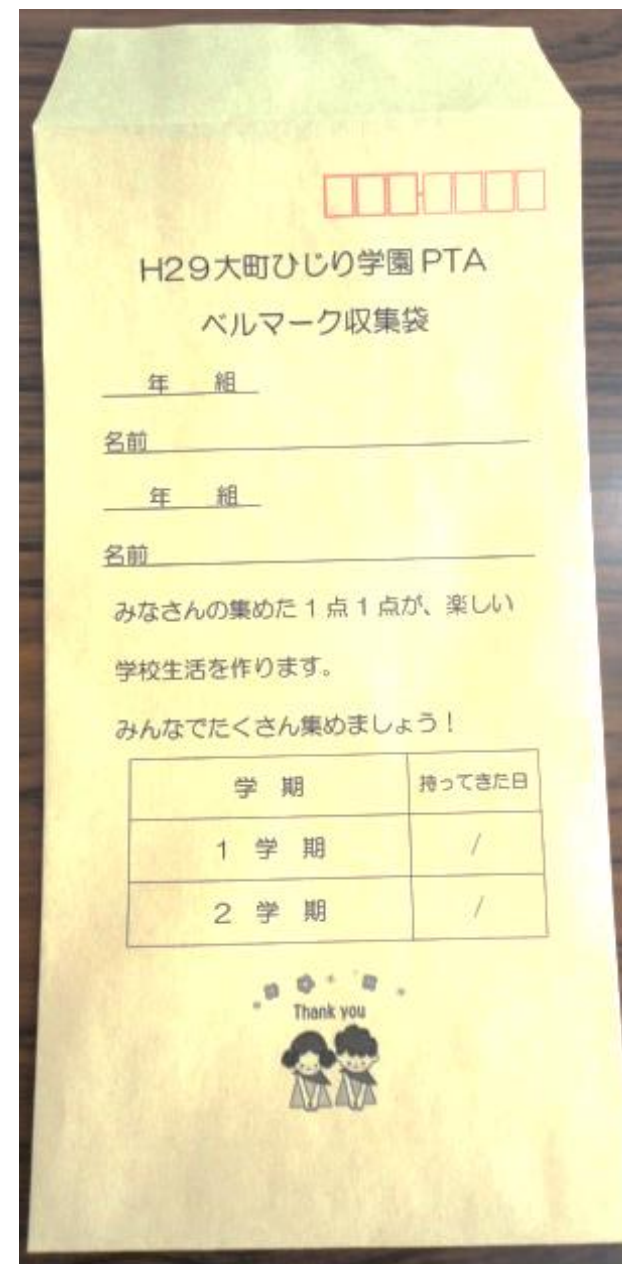 H29大町ひじり学園PTA
ベルマーク収集袋
年 組
名前
年 組
名前
みなさんの集めた1点1点が、楽しい
学校生活を作ります。
みんなでたくさん集めましょう！
学 期 持ってきた日
1 学 期 /
2 学 期 /
Thank you